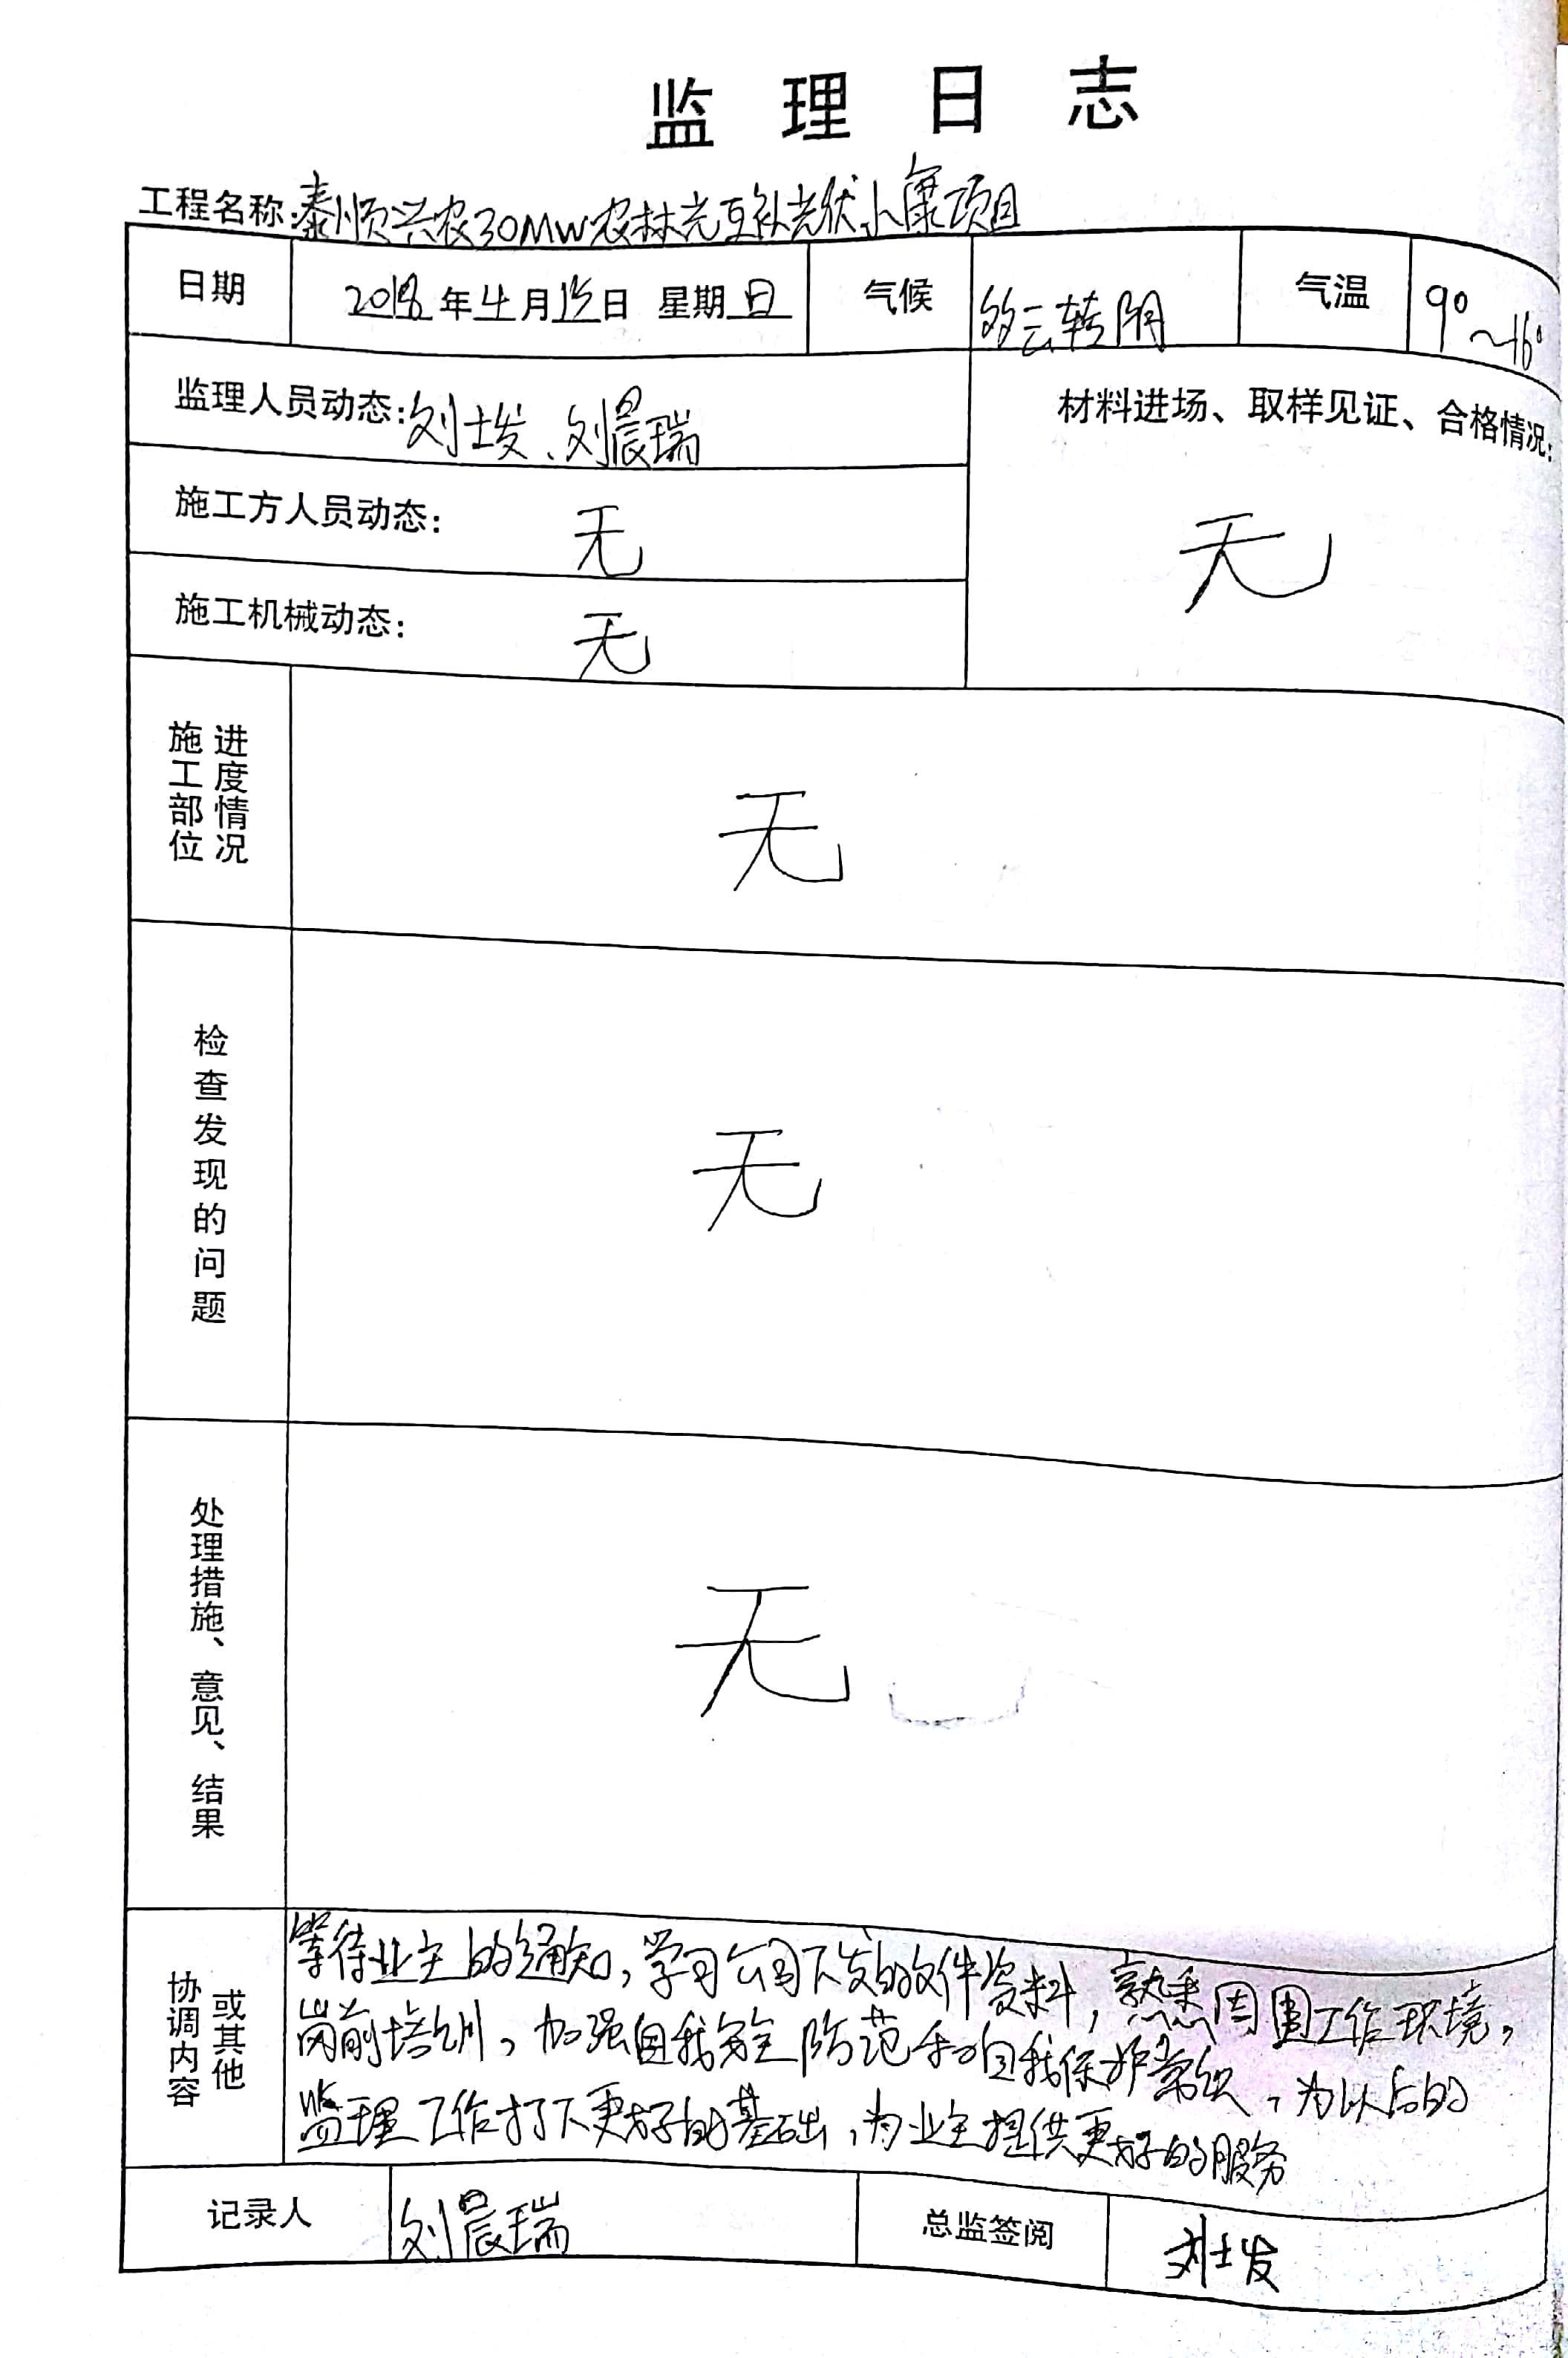 监理日志
工程名称:泰顺兴农30MW农林光互补光伏小康项目
日期 2018年4月15日 星期日 气候 多云转阴 气温 9°~16°
监理人员动态:刘士发、刘晨瑞
材料进场、取样见证、合格情况:
无
施工方人员动态: 无
施工机械动态: 无
施工部位
进度情况
无
检查发现的问题
无
处理措施、意见、结果
无
协调内容
或其他
等待业主的通知,学习公司下发的文件资料,熟悉周围工作环境,
岗前培训,加强自我安全防范和自我保护常识,为以后的
监理工作打下更好的基础,为业主提供更好的服务
记录人 刘晨瑞 总监签阅 刘士发